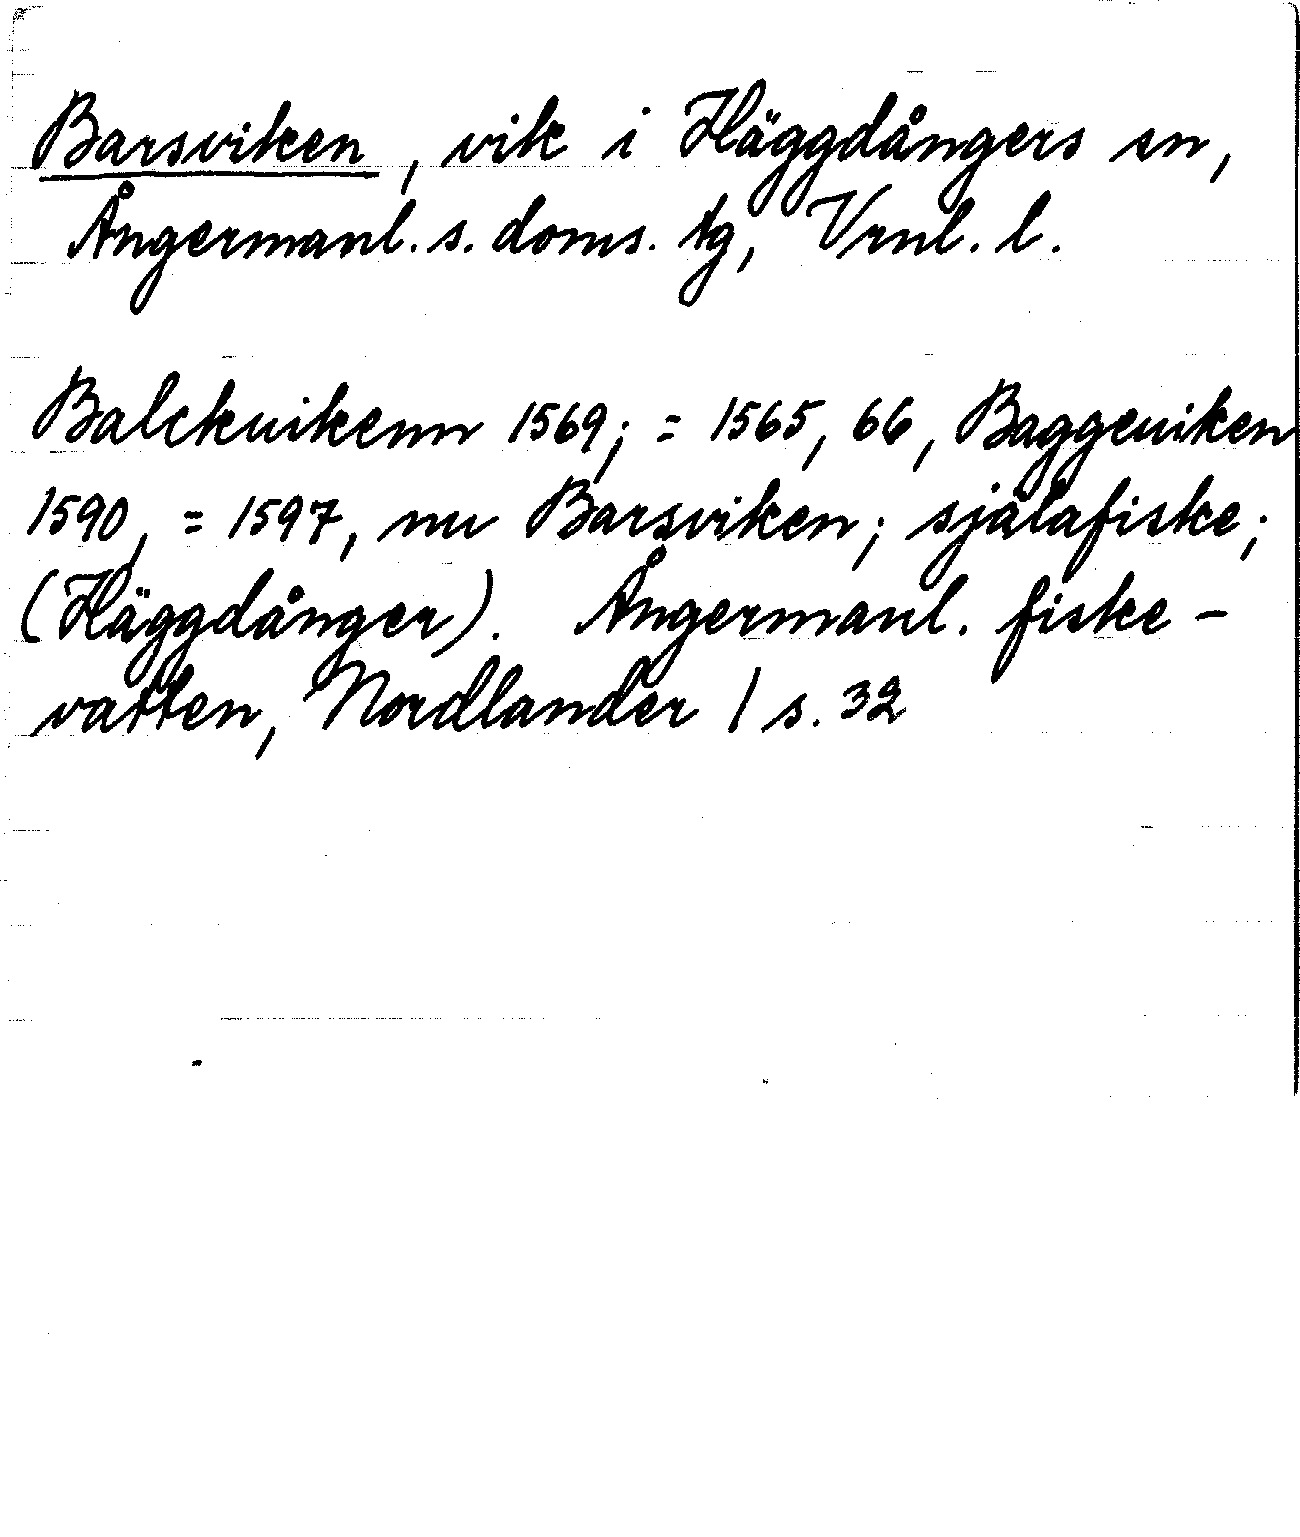 Barsviken, vik i Häggdångers sn,
Ångermanl. s. doms. tg, Vrnl. l.
Balckuikenn 1569; = 1565, 66, Baggeuiken
1590, = 1597, nu Barsviken; själafiske;
(Häggdånger). Ångermanl. fiske-
vatten, Nordlander / s. 32